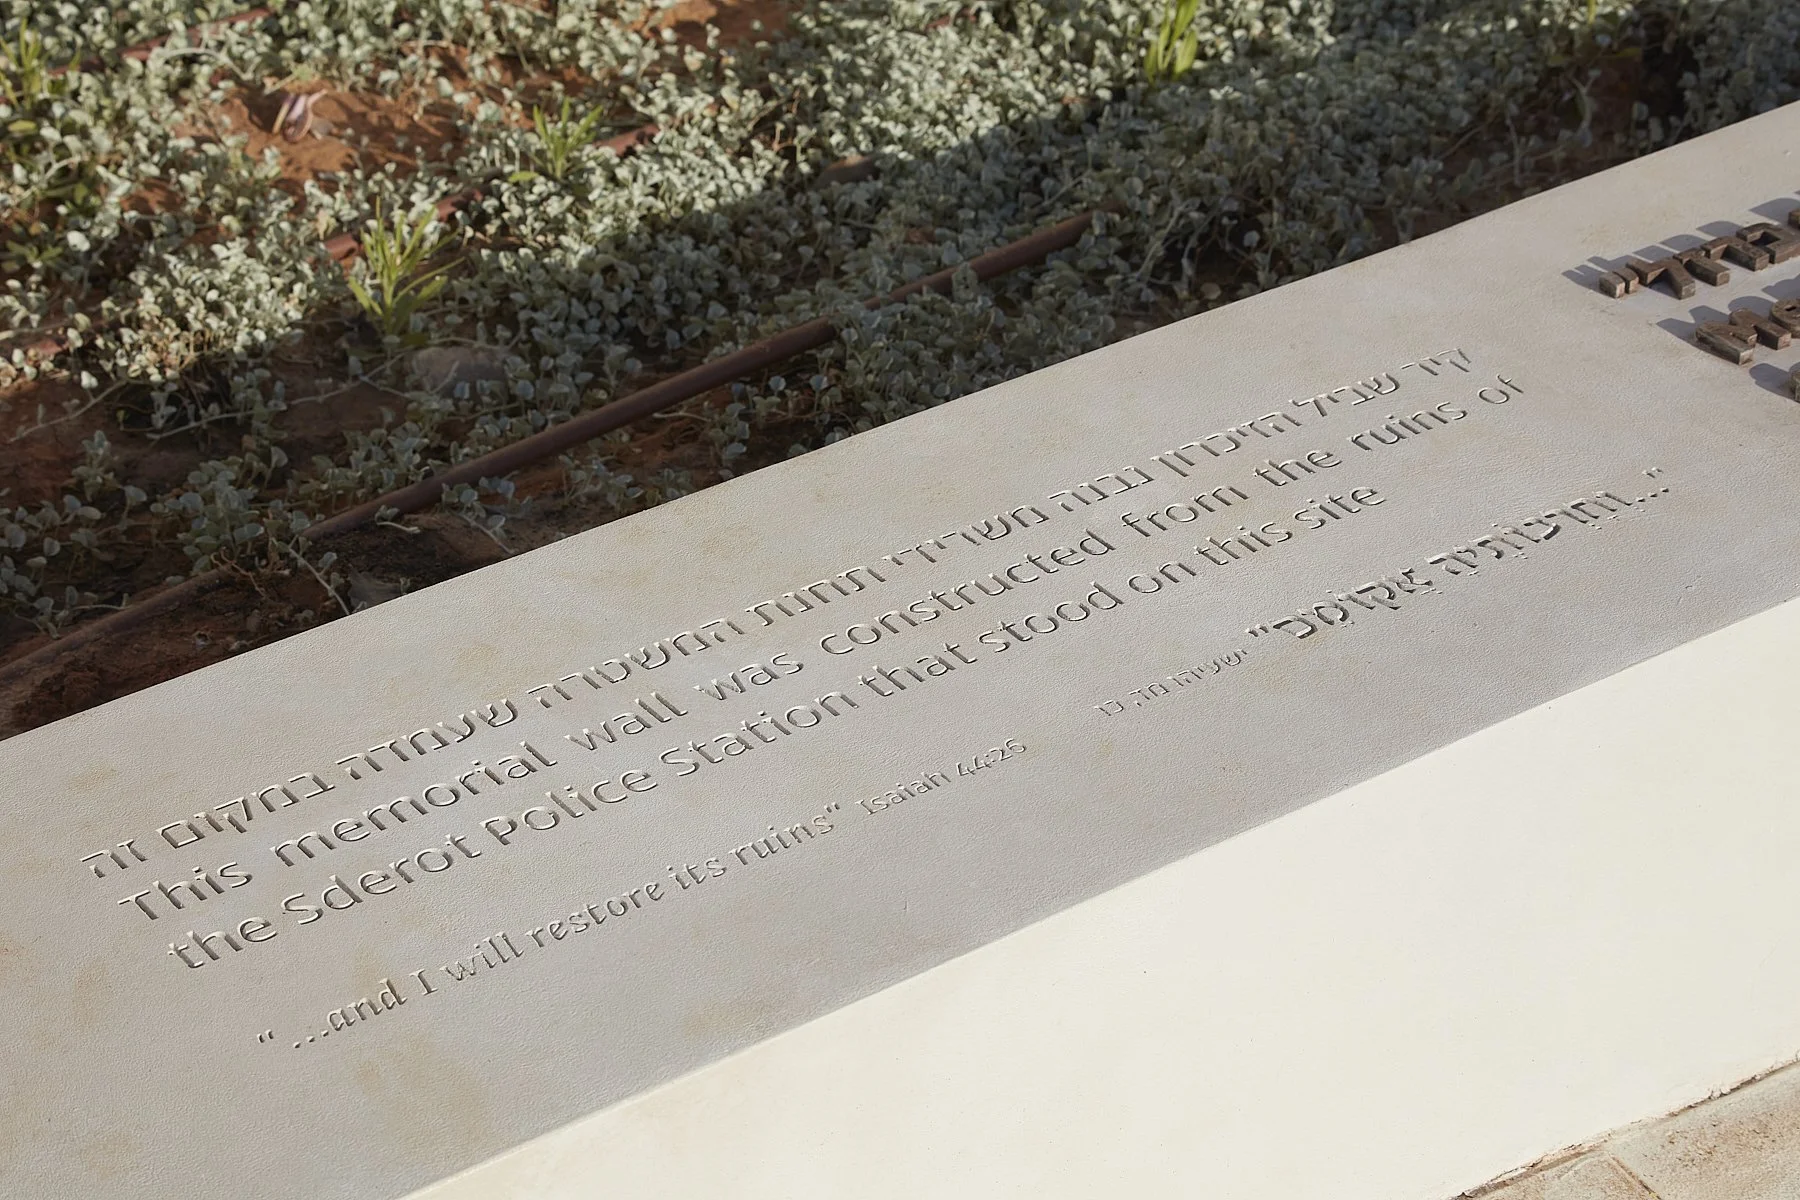 קיר שביל הזיכרון נבנה משרידי תחנת המשטרה שעמדה במקום זה
This memorial wall was constructed from the ruins of
the Sderot Police Station that stood on this site
"...וְחָרְבוֹתֶיהָ אֲקוֹמֵם" ישעיהו מד, כו
" ...and I will restore its ruins" Isaiah 44:26